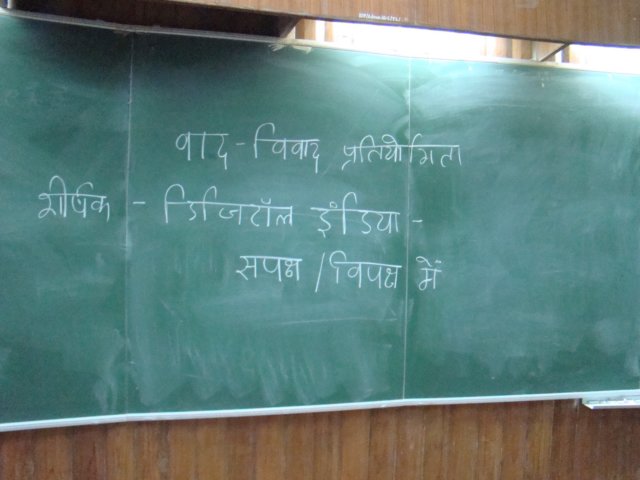 वाद - विवाद प्रतियोगिता
शीर्षक - डिजिटॉल इंडिया -
सपक्ष / विपक्ष में